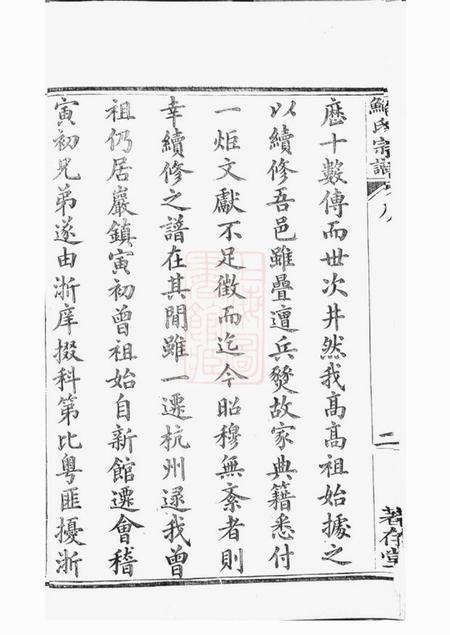 鮑氏宗譜
二
著存堂
歷十數傳而世次井然我高高祖始據之
以續修吾邑雖疊遭兵燹故家典籍悉付
一炬文獻不足徵而迄今昭穆無紊者則
幸續修之譜在其閒雖一遷杭州逯我曾
祖仍居巖鎮寅初曾祖始自新館遷會稽
寅初兄弟遂由浙庠掇科第比粵匪擾浙